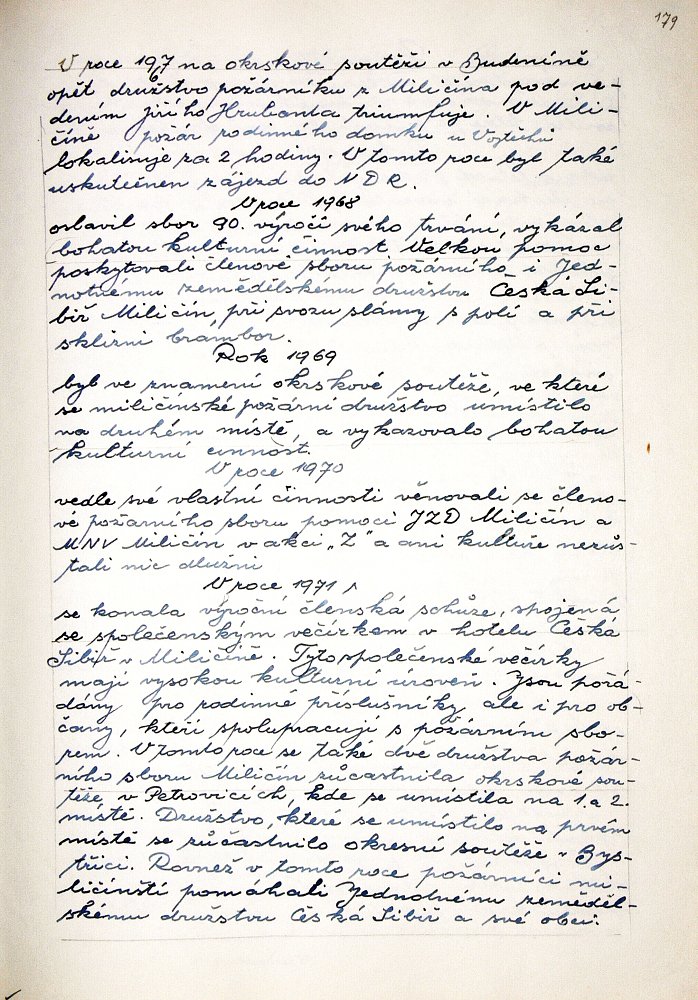 179
V roce 1967 na okrskové soutěži v Budeníně
opět družstvo požárníků z Miličína pod ve-
dením Jiřího Hrubanta triumfuje. V Mili-
číně požár rodinného domku u Vojtěchů
lokalisuje za 2 hodiny. V tomto roce byl také
uskutečněn zájezd do NDR.
V roce 1968
oslavil sbor 90. výročí svého trvání, vykázal
bohatou kulturní činnost. Velkou pomoc
poskytovali členové sboru požárního i Jed-
notnému zemědělskému družstvu Česká Si-
biř Miličín, při svozu slámy s polí a při
sklizni brambor.
Rok 1969
byl ve znamení okrskové soutěže, ve které
se miličínské požární družstvo umístilo
na druhém místě, a vykazovalo bohatou
kulturní činnost.
V roce 1970
vedle své vlastní činnosti věnovali se členo-
vé požárního sboru pomoci JZD Miličín a
MNV Miličín v akci „Z" a ani kultuře nezůs-
tali nic dlužni
V roce 1971
se konala výroční členská schůze, spojená
se společenským večírkem v hotelu Česká
Sibiř v Miličíně. Tyto společenské večírky
mají vysokou kulturní úroveň. Jsou pořá-
dány pro rodinné příslušníky ale i pro ob-
čany, kteří spolupracují s požárním sbo-
rem. V tomto roce se také dvě družstva požár-
ního sboru Miličín zúčastnila okrskové sou-
těže, v Petrovicích, kde se umístila na 1. a 2.
místě. Družstvo, které se umístilo na prvém
místě se zúčastnilo okresní soutěže v Bys-
třici. Rovněž v tomto roce požárníci mi-
ličínští pomáhali Jednotnému zeměděl-
skému družstvu Česká Sibiř a své obci.